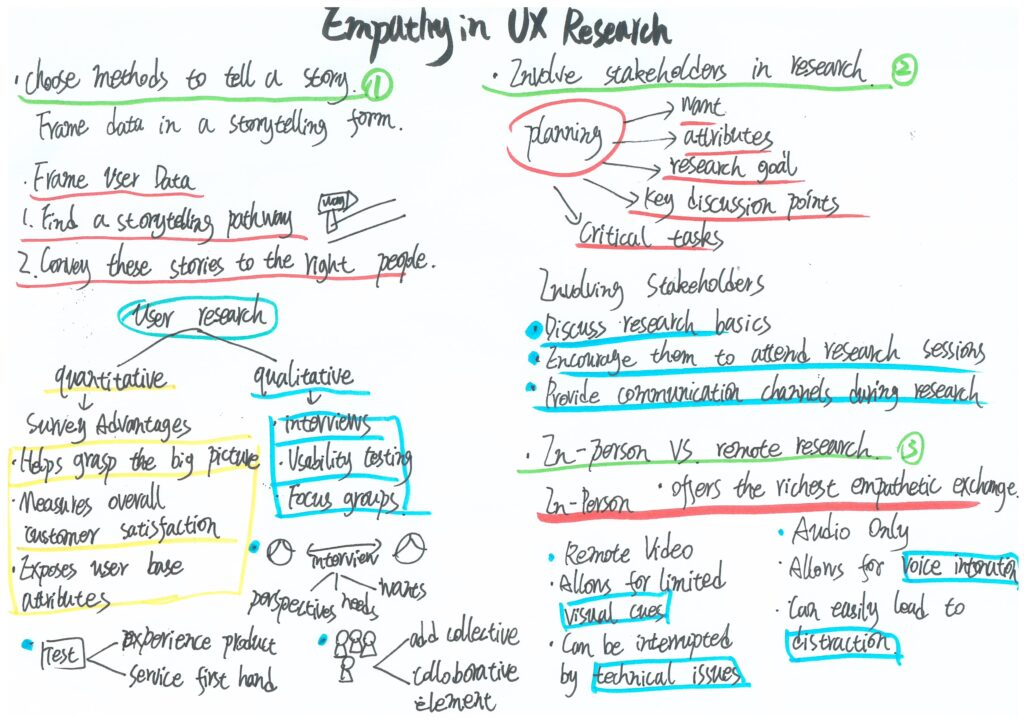 Empathy in UX Research
· choose methods to tell a story. ①
Frame data in a storytelling form.
· Frame User Data
1. Find a storytelling pathway
way
2. Convey these stories to the right people.
User research
quantitative
Survey Advantages
· Helps grasp the big picture
· Measures overall
customer satisfaction
· Exposes user base
attributes
qualitative
· interviews
· Usability testing
· Focus groups
interview
perspectives
needs
wants
Test
experience product
service first hand
add collective
collaborative
element
· Involve stakeholders in research. ②
planning
want
attributes
research goal
key discussion points
Critical tasks
Involving Stakeholders
Discuss research basics
Encourage them to attend research sessions
Provide communication channels during research
· In-person VS. remote research. ③
In-Person · offers the richest empathetic exchange.
· Remote Video
· Allows for limited
visual cues
· Can be interrupted
by technical issues
· Audio Only
· Allows for voice
· Can easily lead to
distraction